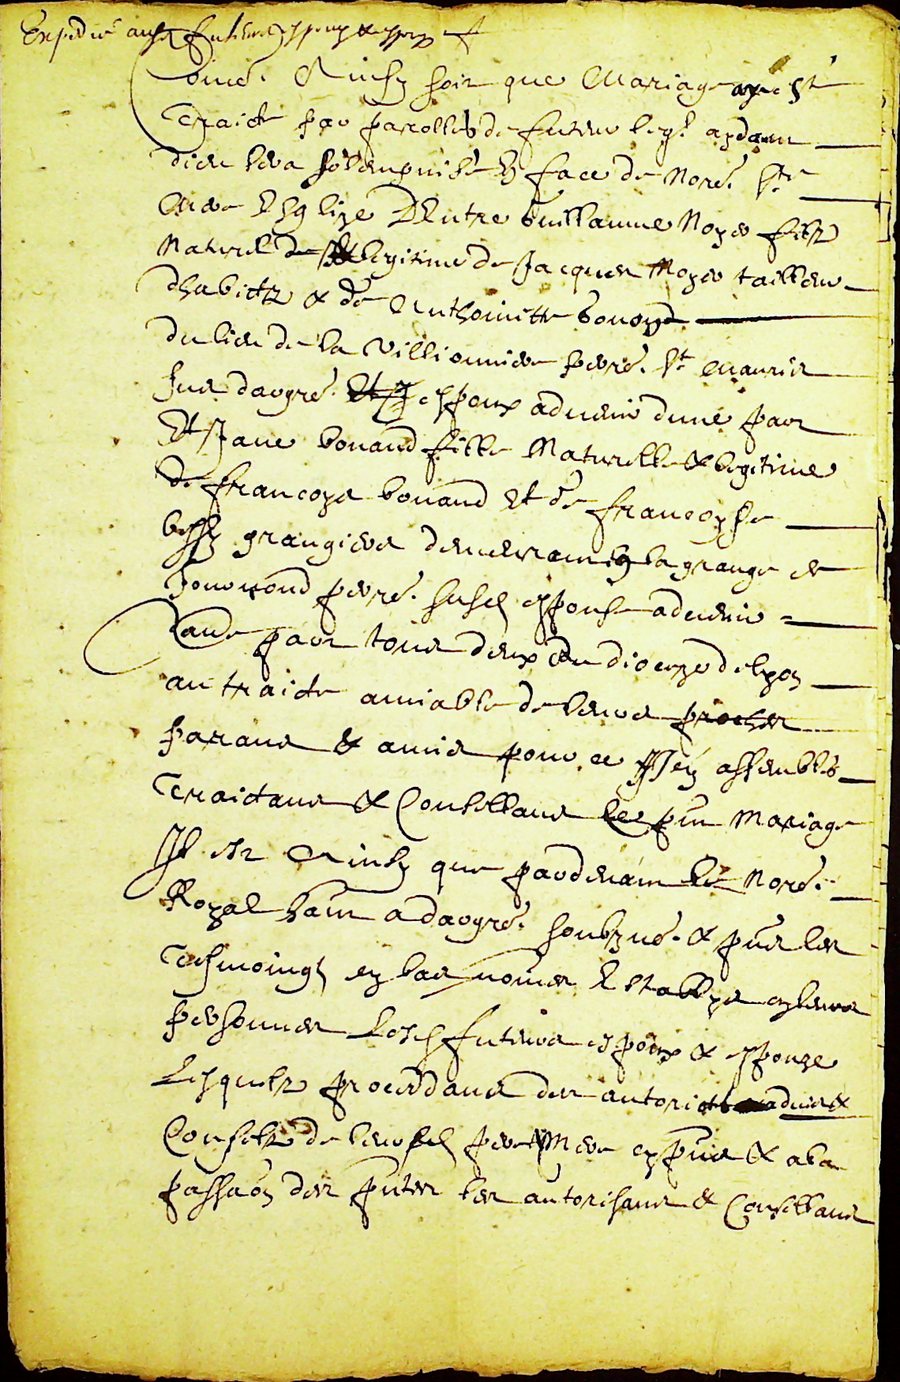 Expedié aux futeurs espoux & espouze
Comē. Ainsy soit que Mariage aye esté
Traicte par parolles de futeur leql aydant
dieu sera sollempnisé En face de Norē. Ste
Mere Esglize Dentre Guillaume Noyer filz
Naturel & legitime de Jacques Noyer tailleur
dhabictz & de Anthoinette
du lieu de la Villionniere perrē. St Maurice
sur dargrē. espoux advenir dune part
Et Jane bonand fille Naturelle & legitime
de francoys bonand Et de francoyse
grangiers demeurant En la grange de
perrē. susd espouse advenir
dautre part tous deux du dioceze de lyon
au traicte amiable de leurs proches
parans & amis pour ce Icy assemblés
Traictans & Conseillans le pnt Mariage
Il est Ainsy que pardevant le Norē.
Royal hānt a dargrē. soubzné. & pns les
Tesmoingtz en bas nomes Establys en leurs
personnes Lesd futeurs espoux & espouze
Lesquelz procedans des autorictés advis &
Conseilz de leursd pere & Mere en pns & a la
passaōn des pntes les autorisans & Conseillans